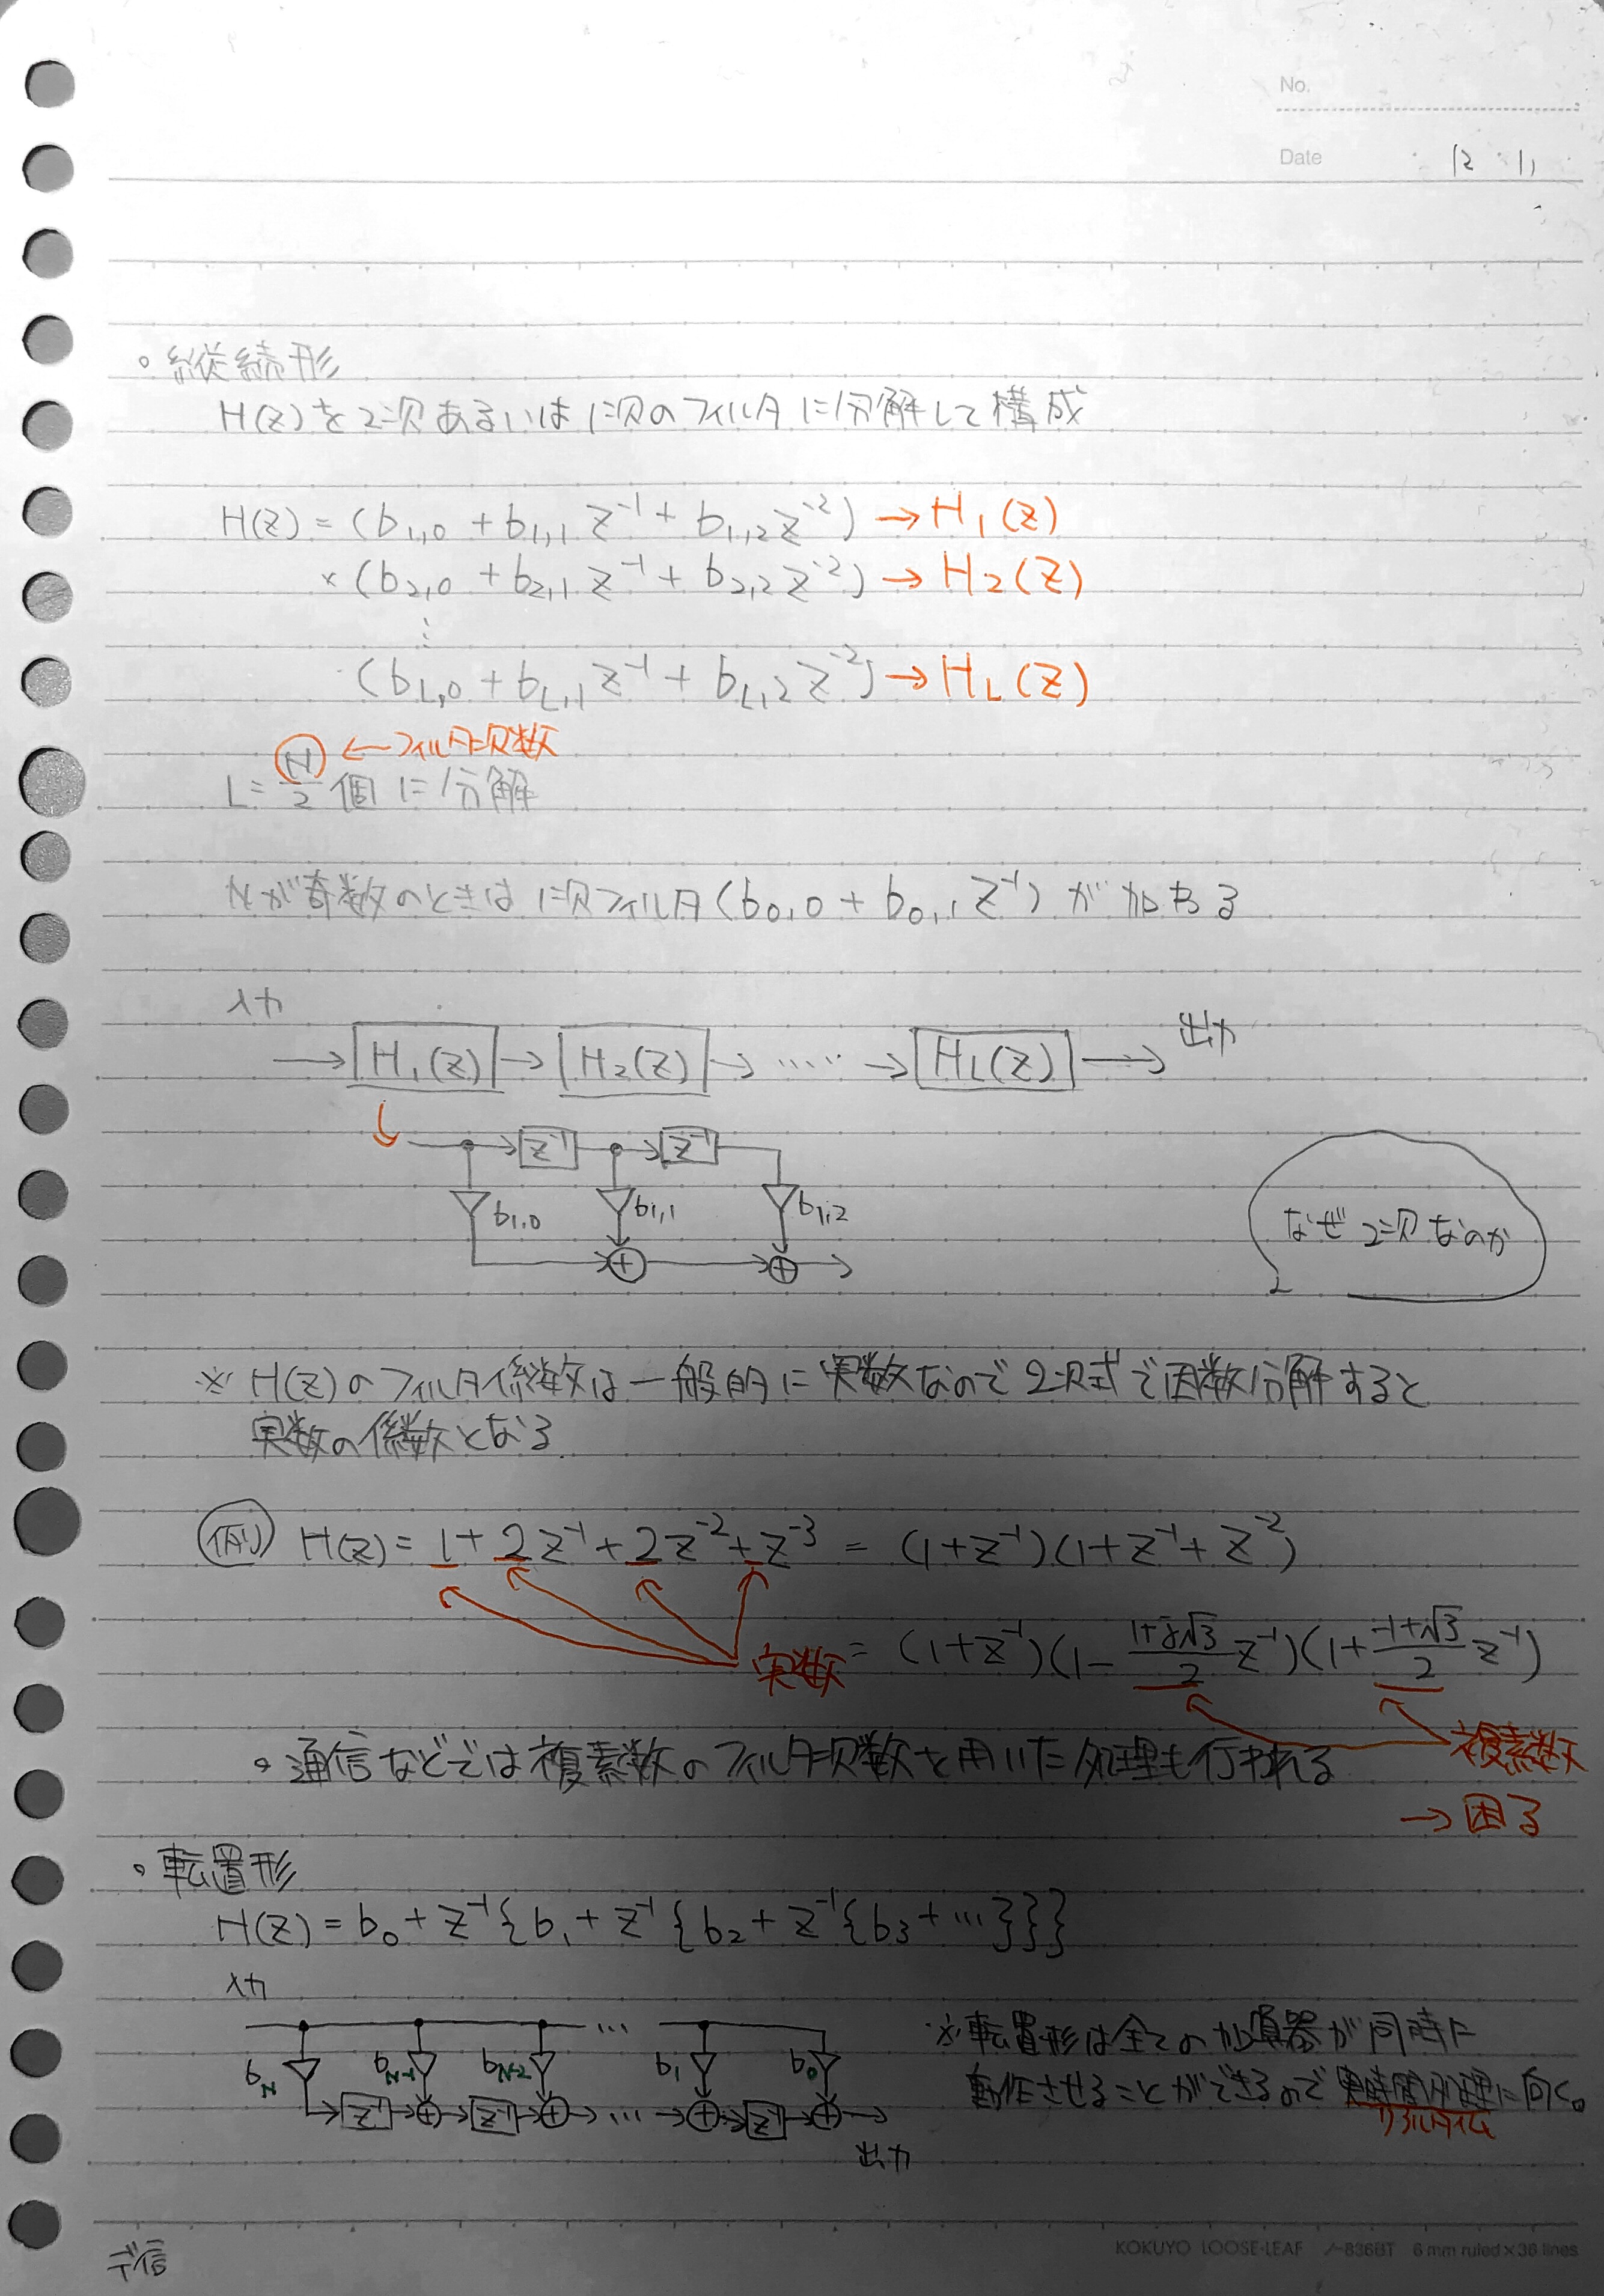 No.
Date 12・11
。縦続形
H(z)を2次あるいは1次のフィルタに分解して構成
H(z) = (b1,0 + b1,1 z^-1 + b1,2 z^-2) → H1(z)
×(b2,0 + b2,1 z^-1 + b2,2 z^-2) → H2(z)
⋮
(bL,0 + bL,1 z^-1 + bL,2 z^-2) → HL(z)
L = N/2 個に分解 ← フィルタ次数
Nが奇数のときは1次フィルタ(b0,0 + b0,1 z^-1)が加わる
入力
→ H1(z) → H2(z) → ..... → HL(z) → 出力
z^-1 z^-1
b1,0 b1,1 b1,2
+ +
なぜ2次なのか
※ H(z)のフィルタ係数は一般的に実数なので2次式で因数分解すると
実数の係数となる
例 H(z) = 1 + 2z^-1 + 2z^-2 + z^-3 = (1+z^-1)(1+z^-1+z^-2)
実数 = (1+z^-1)(1 - (1+j√3)/2 z^-1)(1 + (-1+√3)/2 z^-1)
複素数
→ 困る
。通信などでは複素数のフィルタ次数を用いた処理も行われる
。転置形
H(z) = b0 + z^-1{b1 + z^-1{b2 + z^-1{b3 + …}}}
入力
bN bN-1 bN-2 … b1 b0
z^-1 + z^-1 + … + z^-1 +
出力
※転置形は全ての加算器が同時に
動作させることができるので実時間処理に向く。
リアルタイム
デ信
KOKUYO LOOSE-LEAF ノ-836BT 6 mm ruled×36 lines